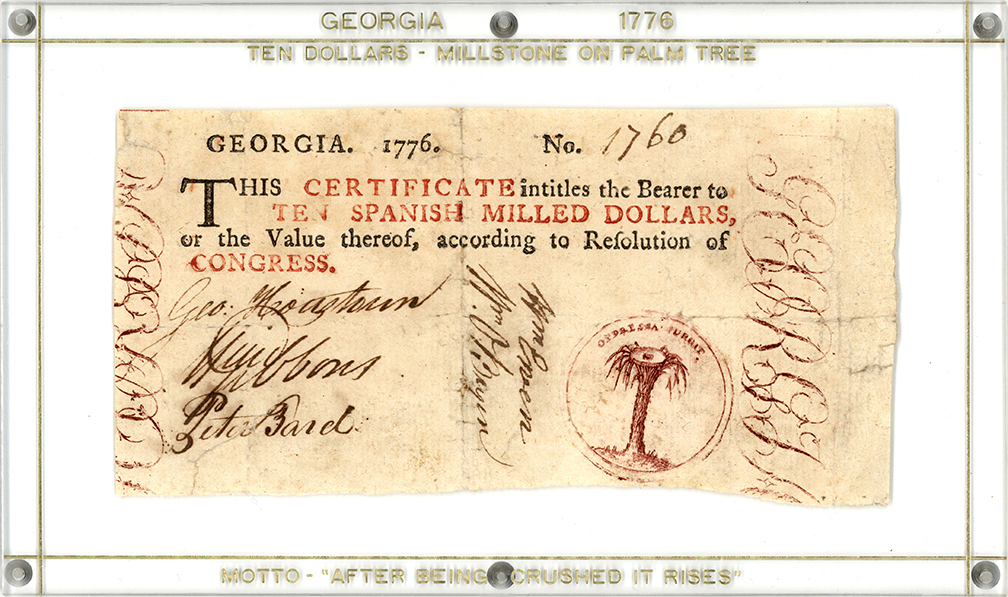 GEORGIA 1776
TEN DOLLARS - MILLSTONE ON PALM TREE
GEORGIA. 1776. No. 1760
THIS CERTIFICATE intitles the Bearer to
TEN SPANISH MILLED DOLLARS,
or the Value thereof, according to Reſolution of
CONGRESS.
Geo: Houstoun
Wm Gibbons
Peter Bard
Wm Ewen
OPPRESSA SURGIT
GEORGIA
MOTTO - "AFTER BEING CRUSHED IT RISES"